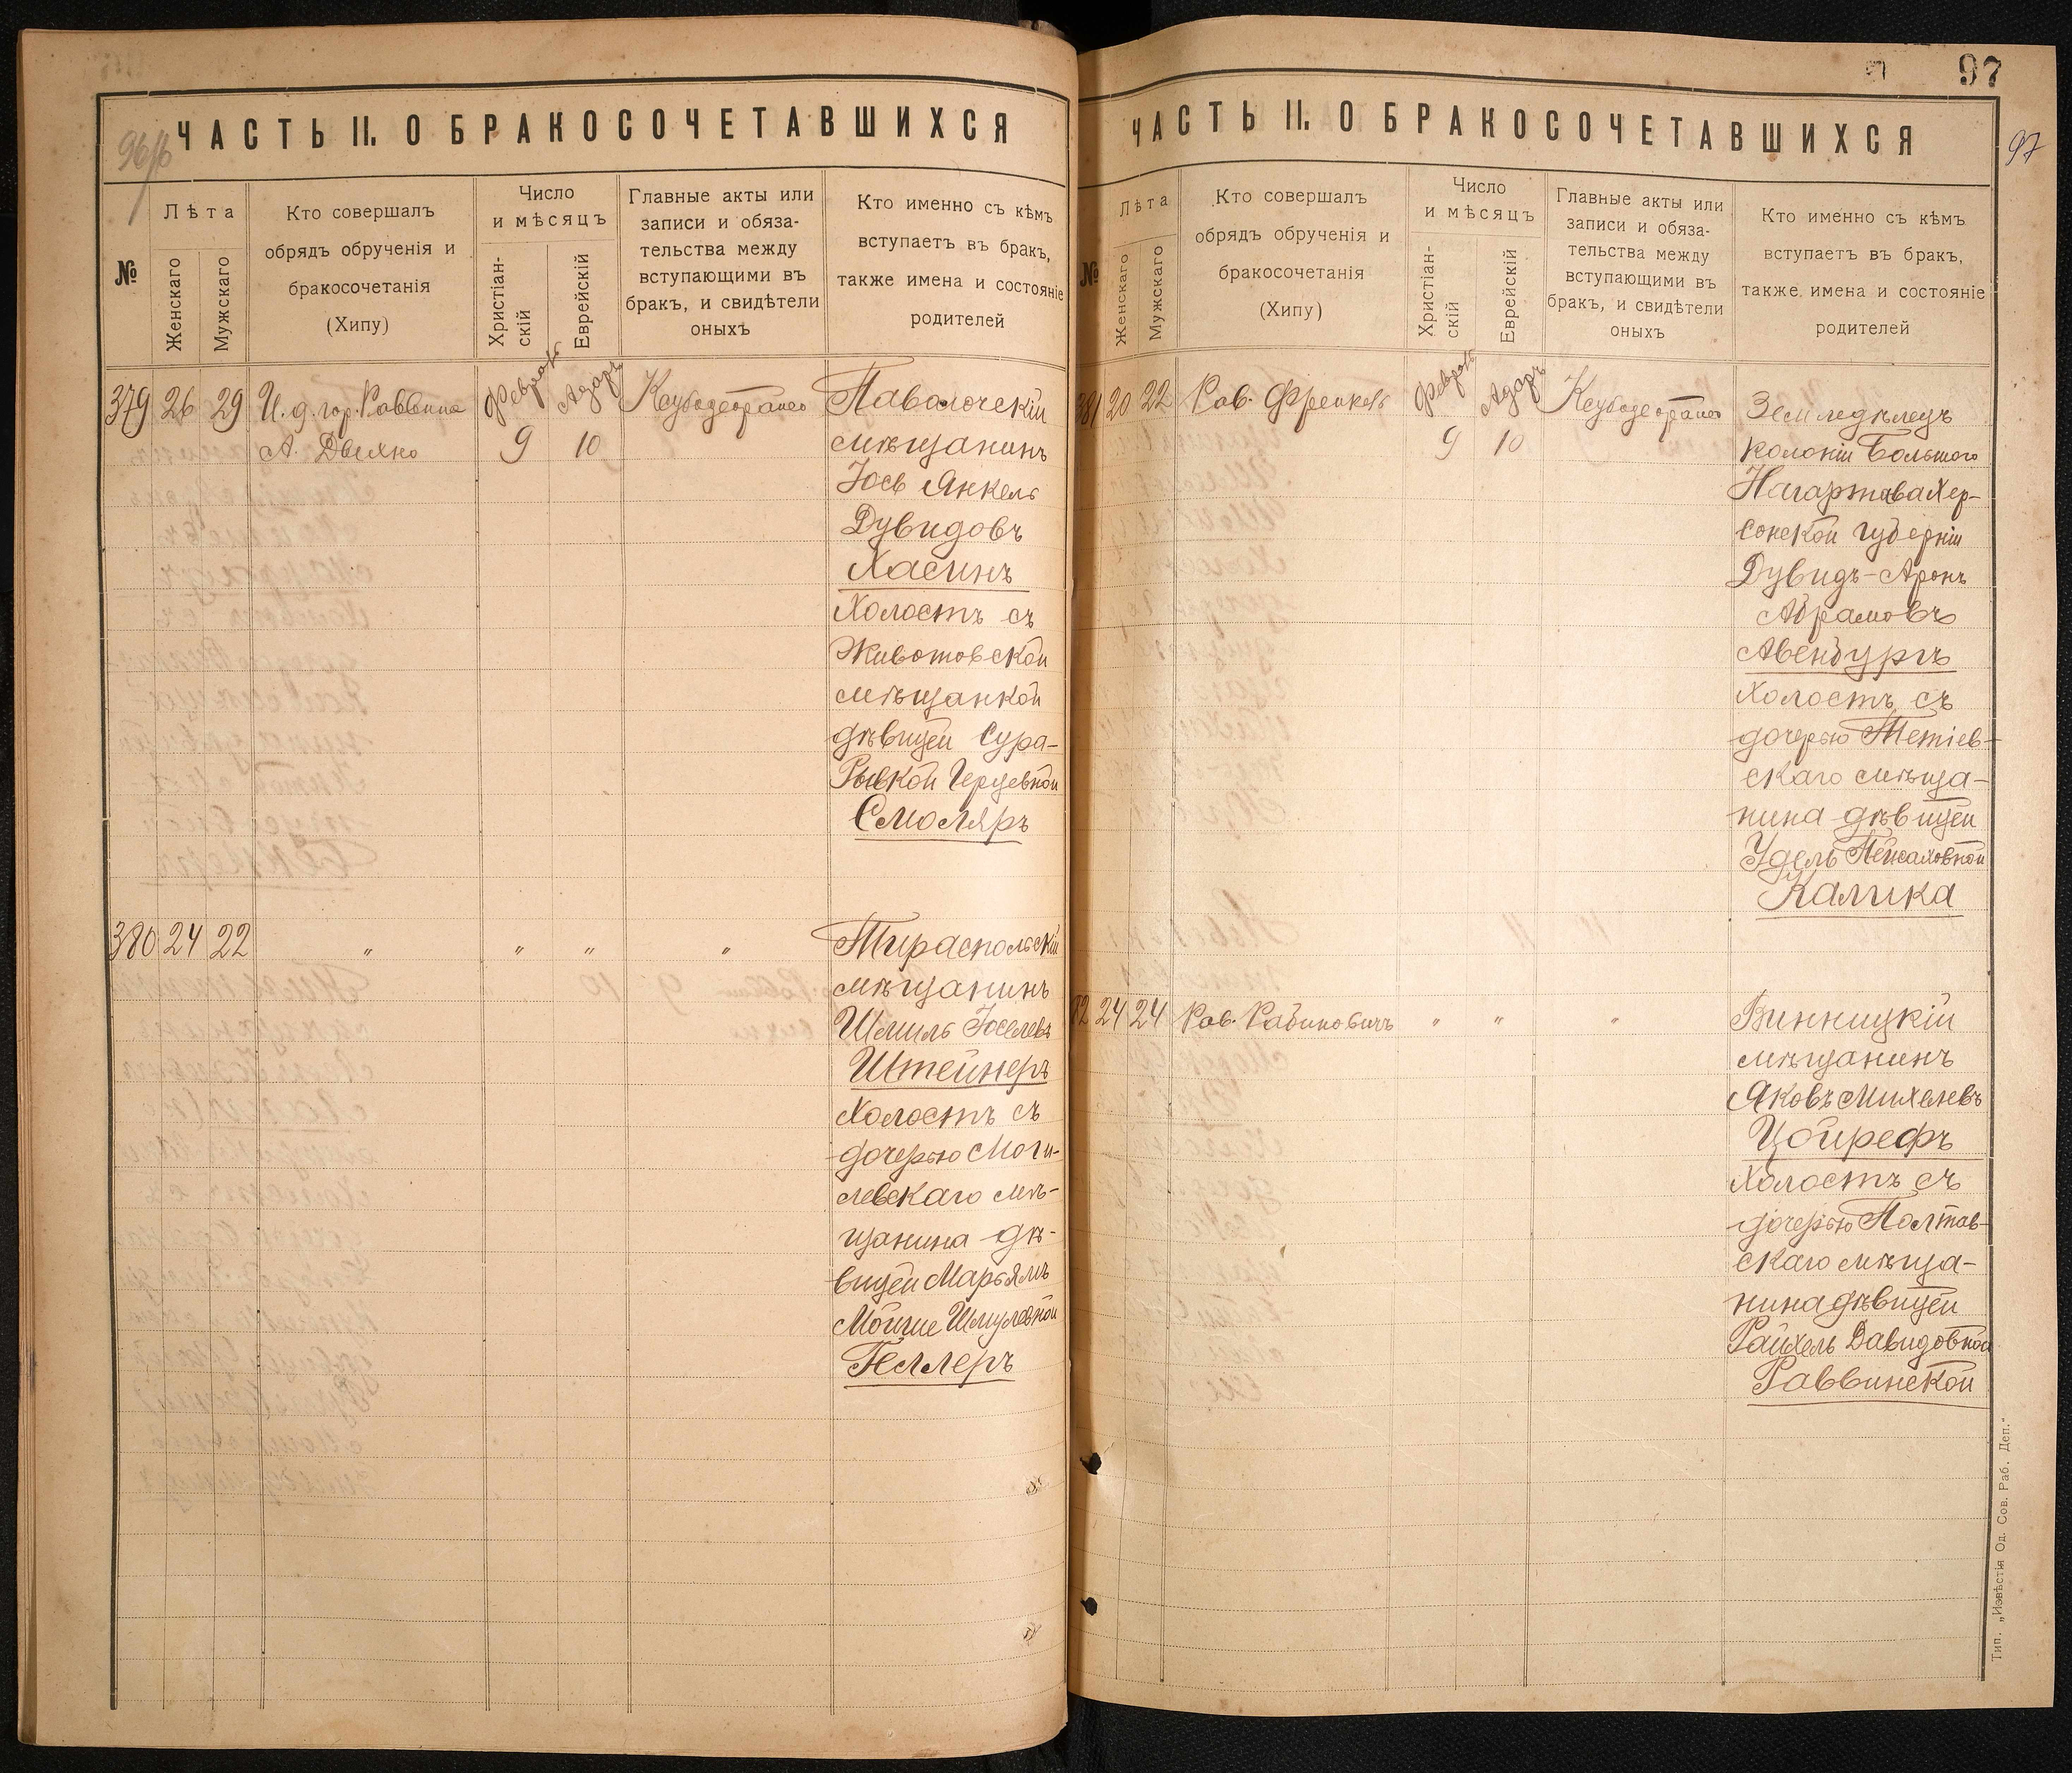 96/б
ЧАСТЬ II. О БРАКОСОЧЕТАВШИХСЯ
№
Лѣта
Женскаго
Мужскаго
Кто совершалъ
обрядъ обрученія и
бракосочетанія
(Хипу)
Число
и мѣсяцъ
Христіан-
скій
Еврейскій
Главные акты или
записи и обяза-
тельства между
вступающими въ
бракъ, и свидѣтели
оныхъ
Кто именно съ кѣмъ
вступаетъ въ бракъ,
также имена и состояніе
родителей
379 26 29 И. д. гор. Раввина
А.
Февраль Адаръ
9 10
Паволочскій
мѣщанинъ
Іось Янкель
Дувидовъ
Хасинъ
холостъ съ
Животовской
мѣщанкой
дѣвицей Сура-
Рывкой Герцевной
Смоляръ
380 24 22 " " " "
Тираспольскій
мѣщанинъ
Шмиль Іоселевъ
Штейнеръ
холостъ съ
дочерью Моги-
левскаго мѣ-
щанина дѣ-
вицей Марьямъ
Шмулевной
Геллеръ
97
97
ЧАСТЬ II. О БРАКОСОЧЕТАВШИХСЯ
№
Лѣта
Женскаго
Мужскаго
Кто совершалъ
обрядъ обрученія и
бракосочетанія
(Хипу)
Число
и мѣсяцъ
Христіан-
скій
Еврейскій
Главные акты или
записи и обяза-
тельства между
вступающими въ
бракъ, и свидѣтели
оныхъ
Кто именно съ кѣмъ
вступаетъ въ бракъ,
также имена и состояніе
родителей
381 20 22 Рав. Френкель
Февраль Адаръ
9 10
Земледѣлецъ
колоніи Большого
Нагартава Хер-
сонской губерніи
Дувидъ-Аронъ
Абрамовъ
Авенбургъ
холостъ съ
дочерью Тетіев-
скаго мѣща-
нина дѣвицей
Удель Пейсаховной
Калика
82 24 24 Рав. Рабиновичъ " " "
Винницкій
мѣщанинъ
Яковъ Михелевъ
Цойрефъ
холостъ съ
дочерью Полтав-
скаго мѣща-
нина дѣвицей
Райхель Давидовной
Раввинской
Тип. „Извѣстія Од. Сов. Раб. Деп."